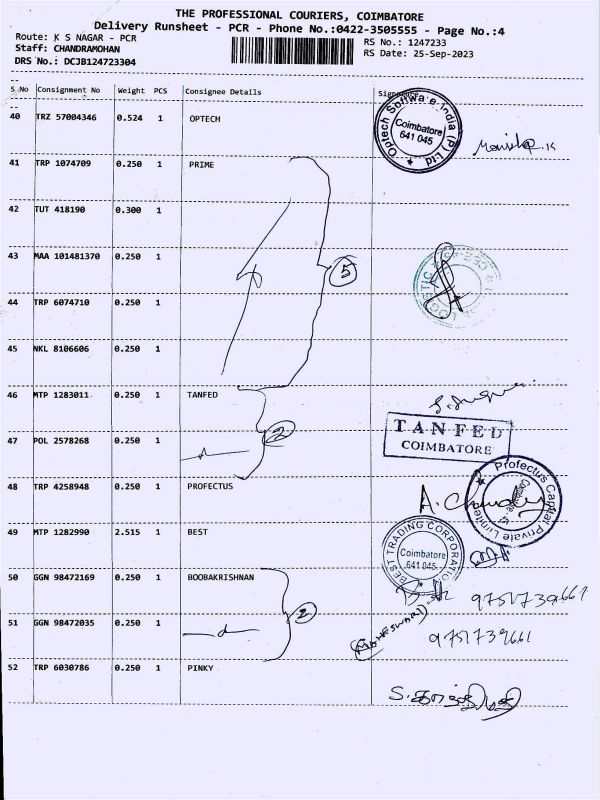 THE PROFESSIONAL COURIERS, COIMBATORE
Delivery Runsheet - PCR - Phone No.:0422-3505555 - Page No.:4
Route: K S NAGAR - PCR
RS No.: 1247233
Staff: CHANDRAMOHAN
RS Date: 25-Sep-2023
DRS No.: DCJB124723304
S No Consignment No Weight PCS Consignee Details Signature
40 TRZ 57004346 0.524 1 OPTECH
Optech Software India (P) Ltd
Coimbatore
641 045
41 TRP 1074709 0.250 1 PRIME
42 TUT 418190 0.300 1
43 MAA 101481370 0.250 1
5
44 TRP 6074710 0.250 1
45 NKL 8106606 0.250 1
46 MTP 1283011 0.250 1 TANFED
TANFED
COIMBATORE
47 POL 2578268 0.250 1
2
48 TRP 4258948 0.250 1 PROFECTUS
Profectus Capital Private Limited
49 MTP 1282990 2.515 1 BEST
BEST TRADING CORPORATION
Coimbatore
641 045
50 GGN 98472169 0.250 1 BOOBAKRISHNAN
9751739661
2
51 GGN 98472035 0.250 1
(MAHESWARI)
9751739661
52 TRP 6030786 0.250 1 PINKY